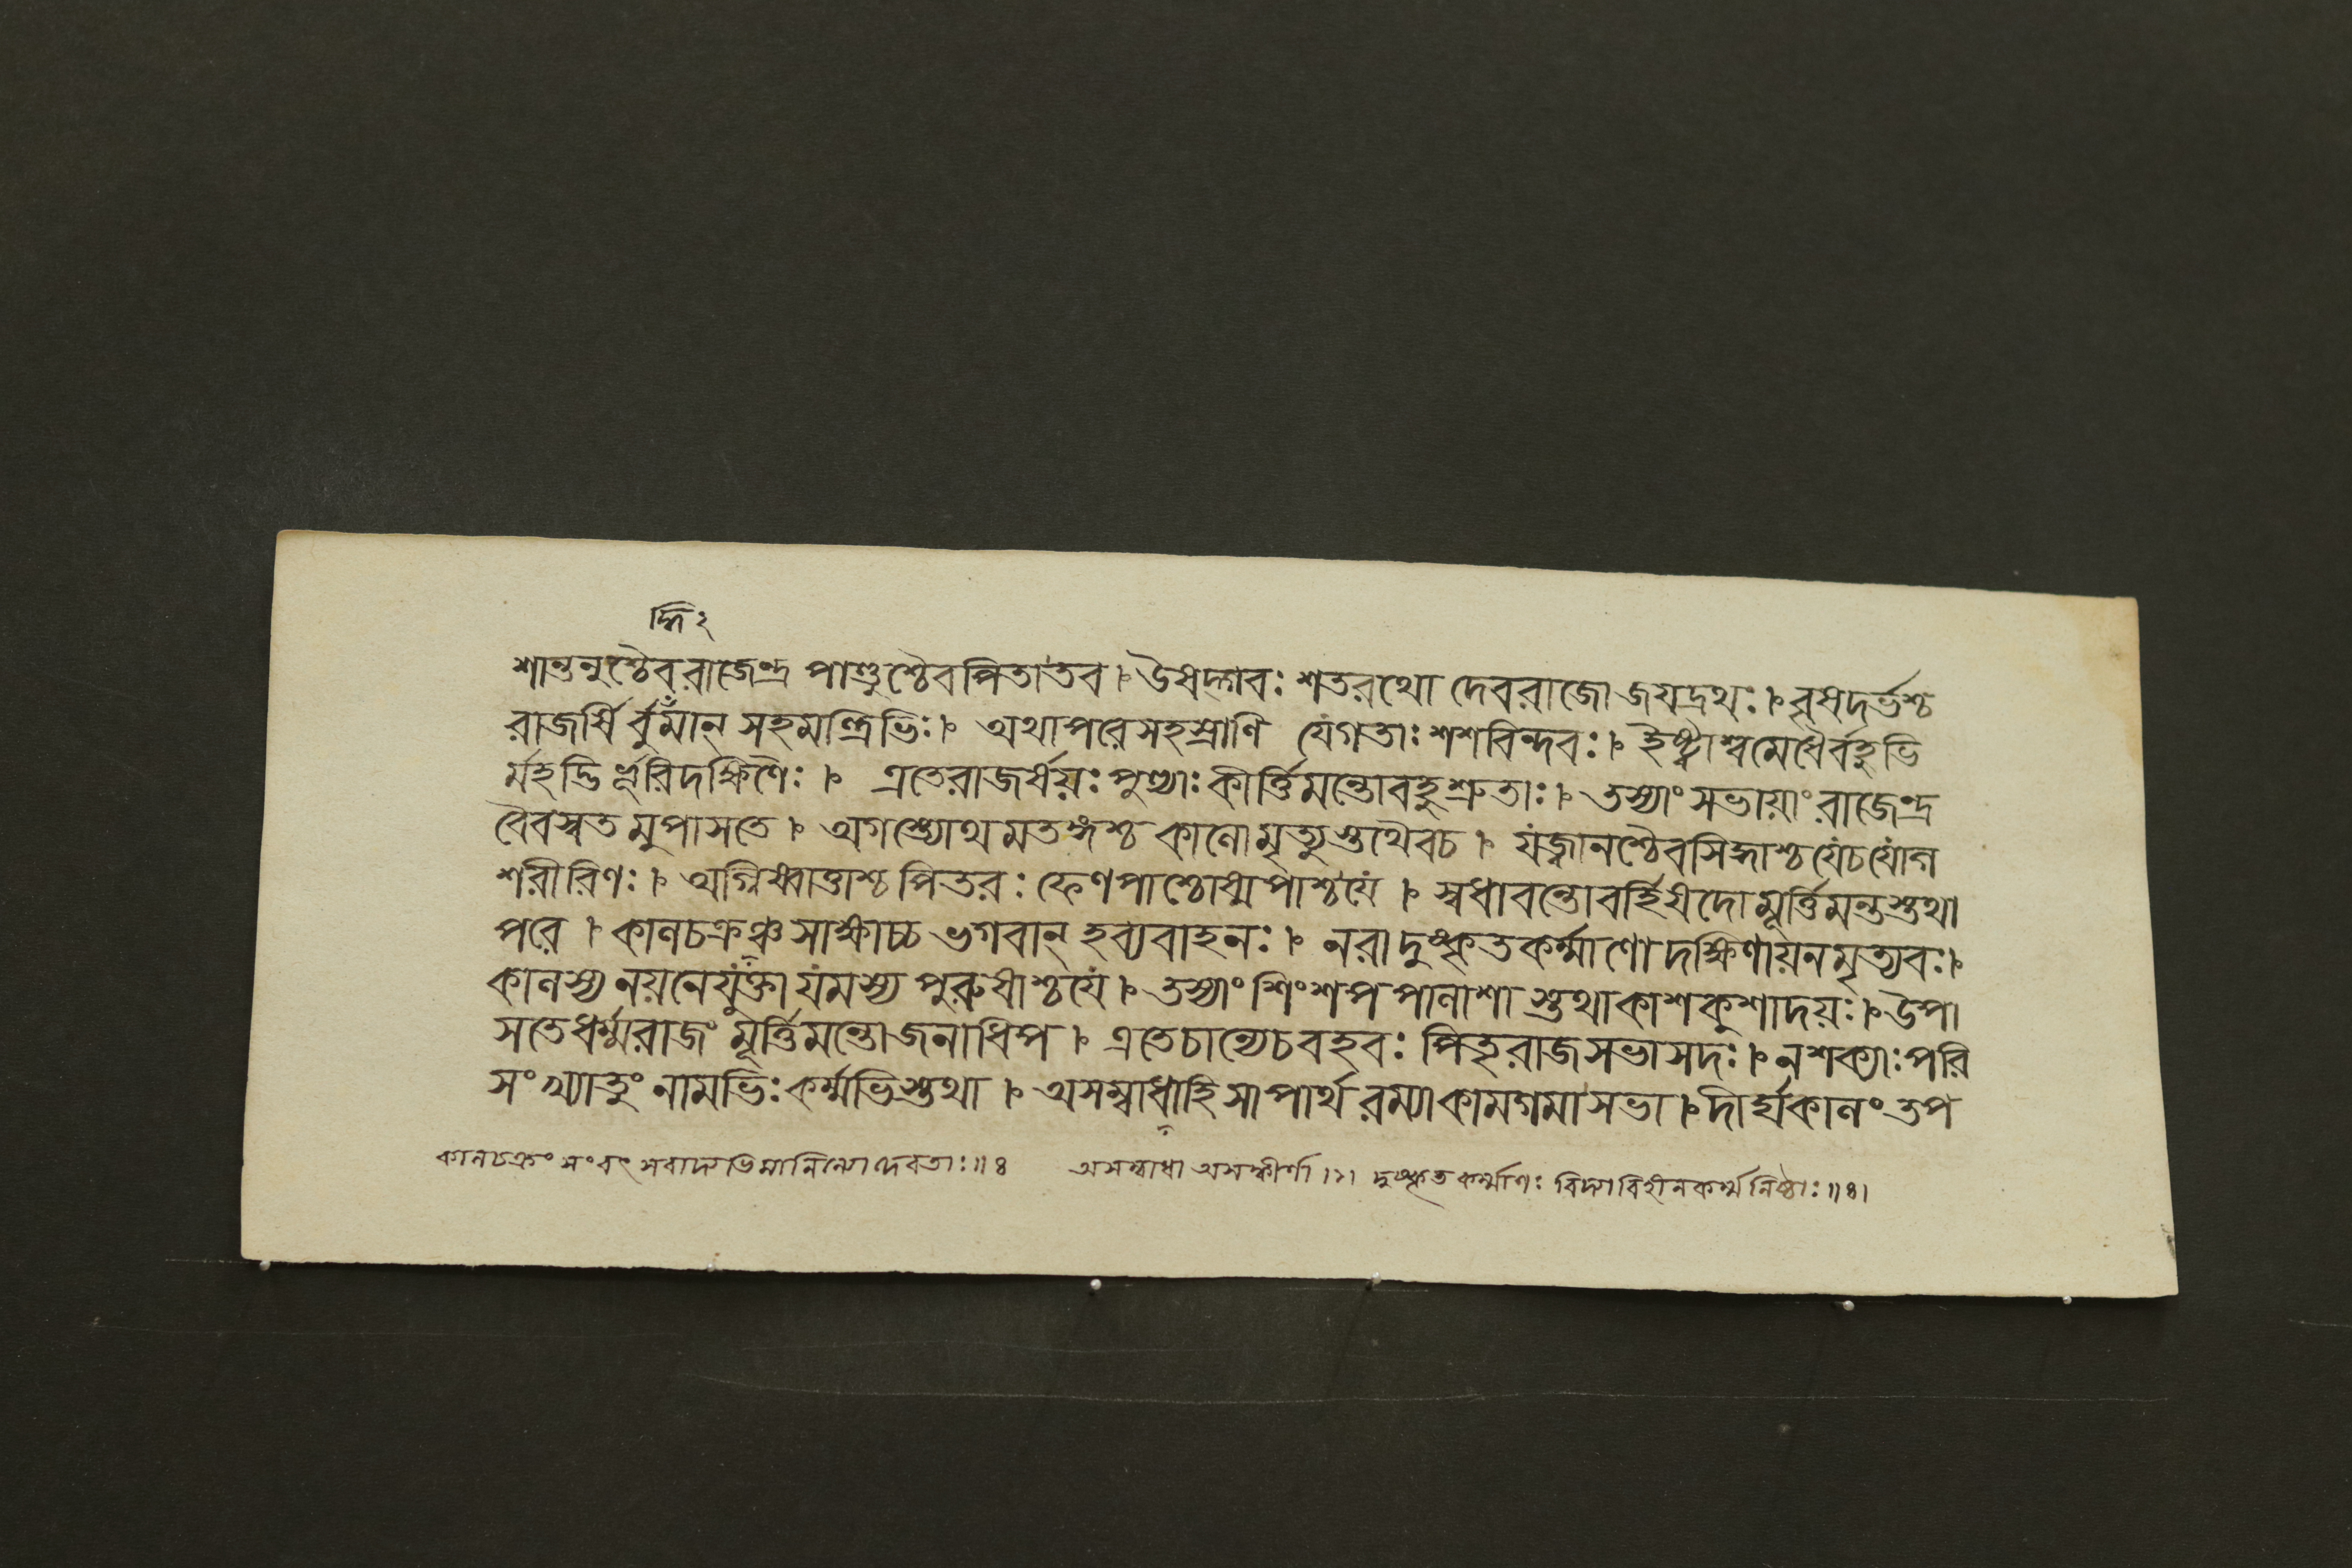 দ্ধি২
শান্তনুশ্চৈবরাজেন্দ্র পাণ্ডুশ্চৈবপিতাতব । উষদ্গবঃ শতরথো দেবরাজো জয়দ্রথঃ । বৃষদর্ভশ্চ
রাজর্ষি র্বুর্মান্ সহমন্ত্রিভিঃ । অথাপরেসহস্রাণি যেগতাঃ শশবিন্দবঃ । ইষ্ট্বাশ্বমেধৈর্বহুভি
র্মহদ্ভি র্ভূরিদক্ষিণৈঃ । এতেরাজর্ষয়ঃ পুণ্যাঃ কীর্ত্তিমন্তোবহুশ্রুতাঃ । তস্যাং সভায়াং রাজেন্দ্র
বৈবস্বত মুপাসতে । অগস্ত্যোথ মতঙ্গশ্চ কালোমৃত্যুস্তথৈবচ । যজ্বানশ্চৈবসিদ্ধাশ্চ যেচযোগ
শরীরিণঃ । অগ্নিষ্বাত্তাশ্চ পিতরঃ ফেণপাশ্চোষ্মপাশ্চযে । স্বধাবন্তোবর্হিষদো মূর্ত্তিমন্তস্তথা
পরে । কালচক্রঞ্চ সাক্ষাচ্চ ভগবান্ হব্যবাহনঃ । নরা দুষ্কৃতকর্ম্মাণো দক্ষিণায়নমৃত্যবঃ ।
কালস্য নয়নেযুক্তা যমস্য পুরুষাশ্চযে । তস্যাং শিংশপ পালাশা স্তথাকাশকুশাদয়ঃ । উপা
সতেধর্ম্মরাজং মূর্ত্তিমন্তো জনাধিপ । এতেচান্যেচবহবঃ পিতৃরাজসভাসদঃ । নশক্যাঃ পরি
সংখ্যাতুং নামভিঃ কর্ম্মভিস্তথা । অসম্বাধাহিসাপার্থ রম্যাকামগমাসভা । দীর্ঘকালং তপ
কালচক্রং সংবৎ সরাদ্যভিমানিন্যো দেবতাঃ ॥ ৪ অসম্বাধা অসঙ্কীর্ণা ।১। দুষ্কৃতকর্ম্মাণঃ বিদ্যাবিহীনকর্ম্মনিষ্ঠাঃ ॥৪।